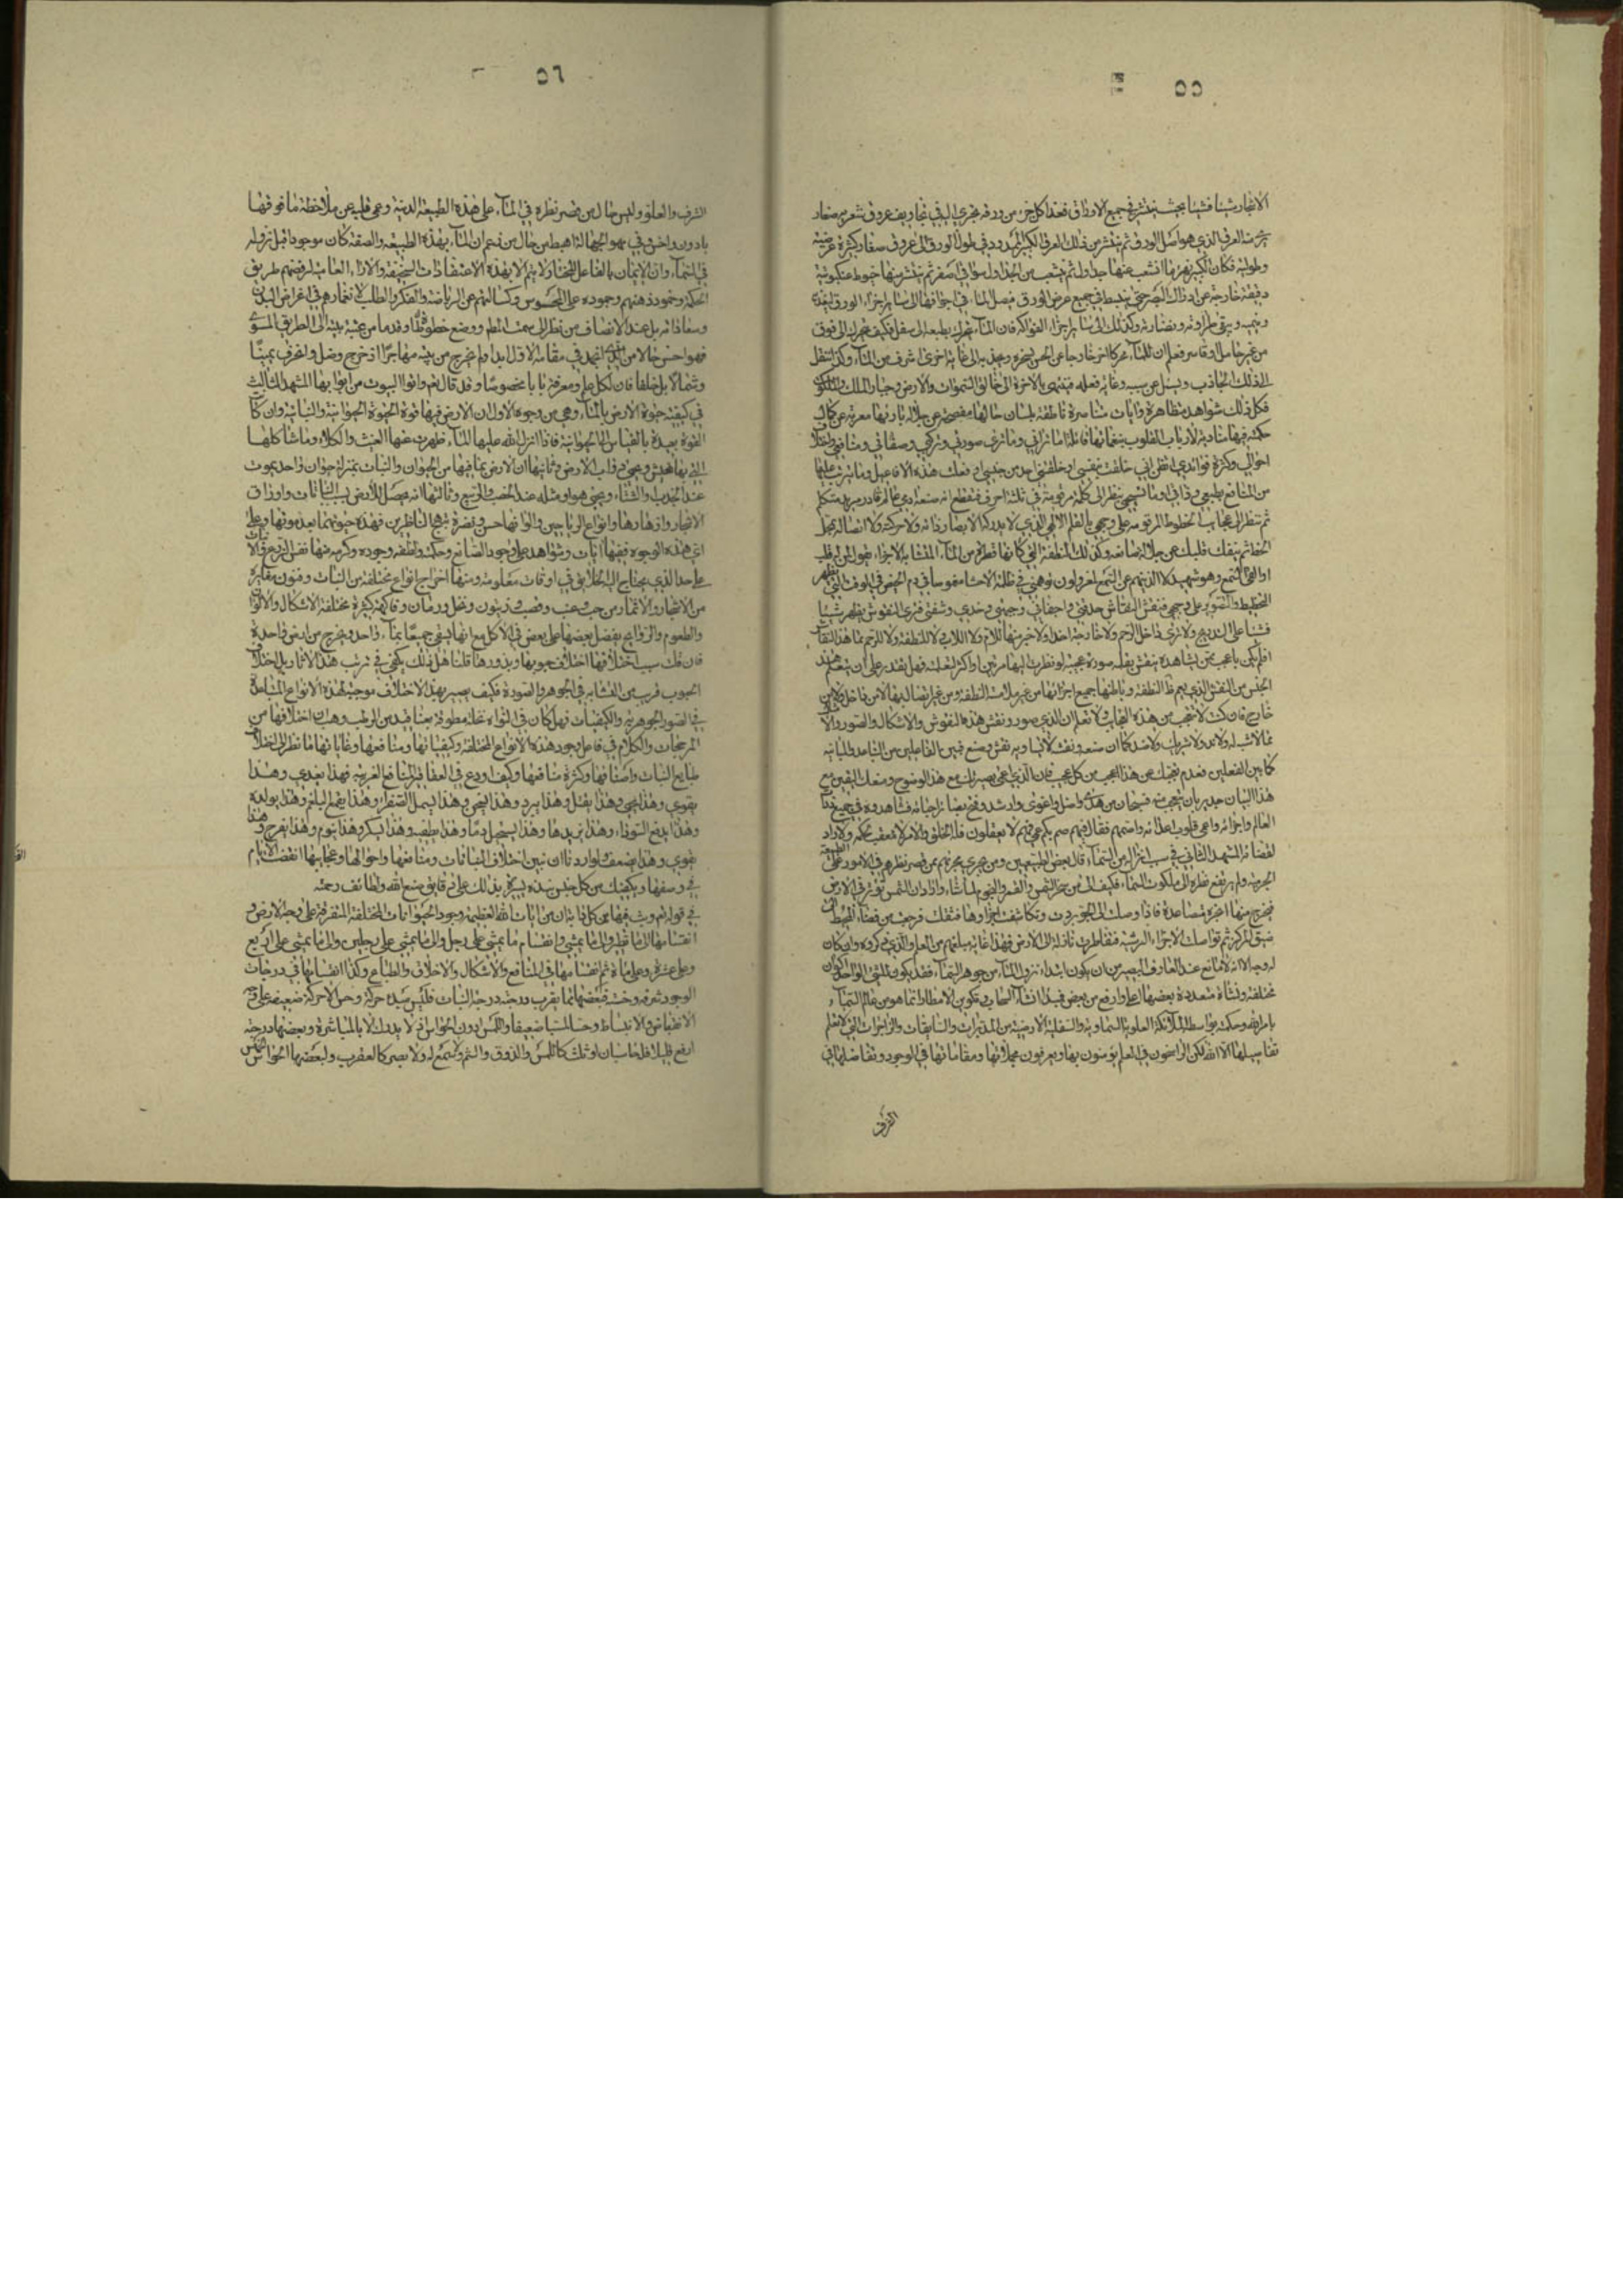 ٥٥
الاشجار شيئا فشيئا بحيث ينتشر في جميع الاوراق فغذا كل جزء من ورقه يجري اليه في تجاويف عروق شعرية صغار
منه العرق الذي هو اصل الورق ثم ينتشر من ذلك العرق الكبير الممدود في طول الورق الى عروق صغار كثيرة عرضية
وطولية فكان الكبير نهر وما انشعب عنها جداول ثم ينشعب من الجداول سواقي اصغر ثم ينتشر منها خيوط عنكبوتية
دقيقة خارجة عن ادراك البصر حتى ينبسط في جميع عرض الورق فيصل الماء في اجوافها الى سائر اجزاء الورق ليغذيه
وينميه ويبقى طراوته ونضارته وكذلك الى سائر اجزاء الفواكه فان الماء يتحرك بطبعه الى سفل فكيف تحرك الى فوق
من غير حامل او قاسر فعلم ان للماء محركا اخر خارجا عن الحس يسخره ويجذبه الى غاية اخرى اشرف من الماء وكذا ننتقل
الى ذلك الجاذب ونسئل عن سببه وغاية فعله فينتهي بالاخرة الى خالق السموات والارض وجبار الملك والملكوت
فكل ذلك شواهد متظاهرة وايات متناصرة ناطقة بلسان حالها مفصحة عن جلالة بارئها معربة عن كمال
حكمته فيها منادية لارباب القلوب بنغماتها قائلة اما تراني وما ترى صورتي وتركيبي وصفاتي ومنافعي واختلاف
احوالي وكثرة فوائدي اتظن اني خلقت بنفسي او خلقني احد من جنسي او فعلت هذه الافاعيل وما يترتب عليها
من المنافع بطبعي وذاتي وما تستحيي تنظر الى كلمة مرقومة في ثلثة احرف فتقطع انه صنعة ادمي عالم قادر مريد متكلم
ثم تنظر الى عجائب الخطوط المرقومة على وجهي بالقلم الالهي الذي لا يدرك الابصار ذاته ولا حركته ولا اتصاله بمحل
الخط ثم ينفك قلبك عن جلالة صانعه وكذلك النطفة التي كانها قطرة من الماء المتشابه الاجزاء تقول لمن له قلب
او القى السمع وهو شهيد لا الذينهم عن السمع لمعزولون توهمني في ظلمة الاحشاء مغموسا في دم الحيض في الوقت الذي يظهر
التخطيط والتصوير على وجهي فينقش النقاش حدقتي واجفاني وجبهتي وخدي وشفتي فترى النقوش يظهر شيئا
فشيئا على التدريج ولا ترى داخل الرحم ولا خارجه احدا ولا خبر منها للام ولا للاب ولا للنطفة ولا للرحم فما هذا النقاش
افلم يكن باعجب ممن تشاهده ينقش بقلمه صورة عجيبة لو نظرت اليها مرتين او اكثر لتعلمته وفهل يقدر على ان يتعلم هذا
الجنس من النقش الذي يعم ظاهر النطفة وباطنها جميع اجزائها من غير ملامسة النطفة ومن غير اتصال بها لا من داخل ولا من
خارج فان كنت لا تتعجب من هذه العجايب ولا تعلم ان الذي صور ونقش هذه النقوش والاشكال والصور والا
مما لا شبه له ولا ند ولا شريك ولا ضد كما ان صنعه ونقشه لا يساويه نقش وصنع فبين الفاعلين من التباعد والمباينة
كما بين الفعلين فعدم تعجبك عن هذا اعجب من كل عجب فان الذي اعمى بصيرتك مع هذا الوضوح ومنعك اليقين مع
هذا البيان جدير بان تتعجب منه فسبحان من هدى واضل واغوى وارشد وفتح بصائر احبائه فشاهدوه في جميع ذرات
العالم واجزائه واعمى قلوب اعدائه واصمهم فقال فيهم صم بكم عمي فهم لا يعقلون فله الخلق والامر لا معقب لحكمه ولا راد
لقضائه المشهد الثاني في سبب انزال من السماء قال بعض الطبيعيين ومن يجري مجراهم ممن قصر نظرهم في الامور على الطبيعة
الجرمية ولم يرتفع نظره الى ملكوت السماء فكيف الى من سخر الشمس والقمر والنجوم لما شاء واراد ان الشمس تؤثر في الارض
فيخرج منها ابخرة متصاعدة فاذا وصلت الى الجو بردت وتكاثفت اجزاؤها فثقلت فرجعت من فضاء المحيط الى
ضيق المركز ثم تواصلت الاجزاء الرشية فتقاطرت نازلة الى الارض فهذا غاية مبلغهم من العلم والذي ذكروه وان كان
له وجه الا انه لا مانع عند العارف البصير من ان يكون ابتداء نزول الماء من جوهر السماء فقد يكون للشيء الواحد اكوان
مختلفة ونشاة متعددة بعضها اعلى وارفع من بعض فمبدا انشاء السحاب في تكوين الامطار انما هو من عالم السماء
بامر الله وحكمته بواسطة الملائكة العلوية السماوية والسفلية الارضية من المدبرات والسابقات والزاجرات التي لا يعلم
تفاصيلها الا الله لكن الراسخون في العلم يؤمنون بها ويعرفون مجملاتها ومقاماتها في الوجود وتفاضلها في
الشرف
٥٦
الشرف والعلو وليس حال من قصر نظره في الماء على هذه الطبيعة الدنية وعمي قلبه عن ملاحظة ما فوقها
بادون واخس في مهوى الجهالة اهبط من حال من زعم ان الماء بهذه الطبيعة والصفة كان موجودا قبل نزوله
في السماء وان الايمان بالفاعل المختار لا يتم الا بهذه الاعتقادات السخيفة والاراء العامية لرفضهم طريق
الحكمة وخمود ذهنهم وجموده على المحسوس وكسالتهم عن الرياضة والفكر والطلب لانغمارهم في اغراض البدن
وسعاداته بل عند الانصاف من نظر الى سمت المطلوب ووضع خطوة وقدما من عتبة بيته الى الطريق المستوي
فهو احسن حالا من الذي انجمد في مقامه الاول ابدا ولم يخرج من بيته مهاجرا او خرج وضل وانحرف يمينا
وشمالا بل خلفا فان لكل علم ومعرفة بابا مخصوصا وقد قال تعالى واتوا البيوت من ابوابها المشهد الثالث
في كيفية حيوة الارض بالماء وهي من وجوه الاول ان الارض فيها قوة الحيوة الحيوانية والنباتية وان كانت
القوة بعيدة بالقياس الى الحيوانية فاذا انزل الله عليها الماء ظهرت عنها العشب والكلاء وما شاكلها
التي بها تعيش وتحيى دواب الارض وثانيها ان الارض بما فيها من الحيوان والنبات بمنزلة حيوان واحد يموت
عند الجدب والشتاء ويحيى هو او مثله عند الخصب والربيع وثالثها انه يحصل للارض بسبب النباتات واوراق
الاشجار وازهارها وانواع الرياحين والوانها حسن ونضرة تبهج الناظرين فهذه حيوتها بعد موتها وعلى
اي هذه الوجوه ففيها ايات وشواهد على وجود الصانع وحكمته ولطفه وجوده وكرمه منها نفس الزرع والنبات
على حد الذي يحتاج اليه الخلائق في اوقات معلومة ومنها اخراج انواع مختلفة من النبات وفنون متغايرة
من الاشجار والاثمار من حب وعنب وقضب وزيتون ونخل ورمان وفاكهة كثيرة مختلفة الاشكال والالوان
والطعوم والروائح يفضل بعضها على بعض في الاكل مع انها يسقى جميعا بماء واحد ويخرج من ارض واحدة
فان قلت سبب اختلافها اختلاف حبوبها وبذورها قلنا هل ذلك يكفي في ترتب هذه الاثار بل اختلاف
الحبوب قريب من التشابه في الجوهر والصورة فكيف يصير بهذا الاختلاف موجبة لهذه الانواع المتباعدة
في الصور الجوهرية والكيفيات فهل كان في النواة نخلة مطوقة بعناقيد من الرطب وهب ان اختلافها من
المرجحات والكلام في فاعل وجود هذه الانواع المختلفة وكيفياتها ومنافعها وغاياتها فانظر الى اختلاف
طبايع النبات واصنافها وكثرة منافعها وكيف اودع في العقاقير المنافع الغريبة فهذا يغذي وهذا
يقوي وهذا يحيي وهذا يقتل وهذا يبرد وهذا يسخن وهذا يسهل الصفراء وهذا يقمع البلغم وهذا يولده
وهذا يدفع السوداء وهذا يزيدها وهذا يستحيل دما وهذا يطفيه وهذا يسكر وهذا ينوم وهذا يفرح وهذا
يقوي وهذا يضعف ولو اردنا ان نبين اختلاف النباتات ومنافعها واحوالها وعجايبها انقضت الايام
في وصفها ويكفيك من كل جنس نبذة يسيرة يدلك على دقايق صنع الله ولطائف رحمته
في قوله تعالى وبث فيها من كل دابة ان من ايات الله العظيمة وجود الحيوانات المختلفة المتفرقة على وجه الارض و
انقسامها الى ما يطير والى ما يمشي وانقسام ما يمشي على رجل والى ما يمشي على رجلين والى ما يمشي على اربع
وعلى عشرة وعلى مائة ثم انقسامها في المنافع والاشكال والاخلاق والطباع وكذا انقسامها في درجات
الوجود شرفه وخسته فبعضها مما يقرب درجته درجة النبات فليس فيه حركة وحس الا حركة ضعيفة على
الانقباض والانبساط وحسا لمسيا ضعيفا واللمس دون الحواس لانه لا يدرك الا بالمباشرة وبعضها درجته
ارفع قليلا فله حاستان او ثلث كاللمس والذوق والشم ولا سمع له ولا بصر كالعقرب ولبعضها الحواس الخمس